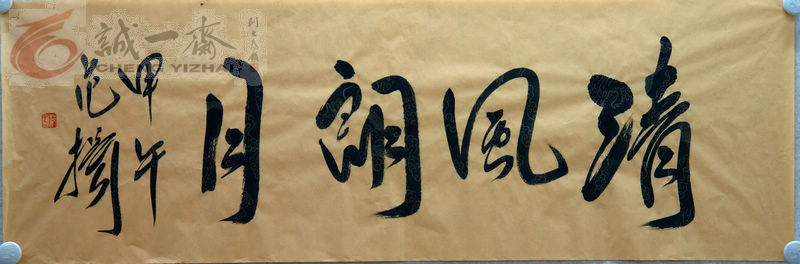 清風朗月
甲午
范揚
誠一齋
CHENG YIZHAI